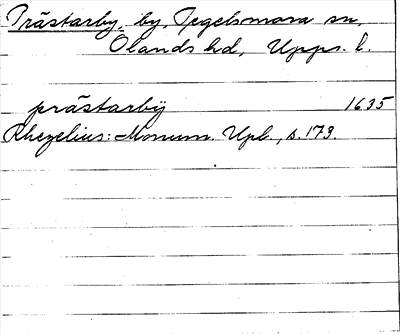 Prästarby, by, Tegelsmora sn,
Olands hd, Upps. l.
prästarbÿ 1635
Rhezelius: Monum. Upl., s. 173.